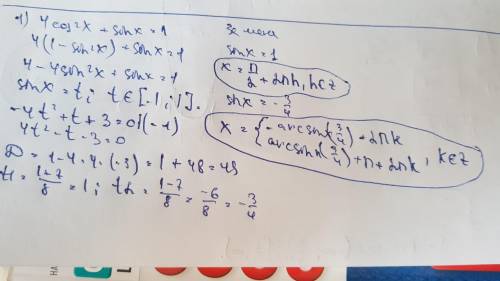 1) 4cos²x + sinx = 1
4(1 - sin²x) + sinx = 1
4 - 4sin²x + sinx = 1
sinx = t; t ∈ [-1; 1].
-4t² + t + 3 = 0 | (-1)
4t² - t - 3 = 0
D = 1 - 4 · 4 · (-3) = 1 + 48 = 49
t1 = 1+7/8 = 1; t2 = 1-7/8 = -6/8 = -3/4
замена
sinx = 1
x = π/2 + 2πn, n∈z
sinx = -3/4
x = { -arcsin(3/4) + 2πk
arcsin(3/4) + π + 2πk, k∈z
HA
L